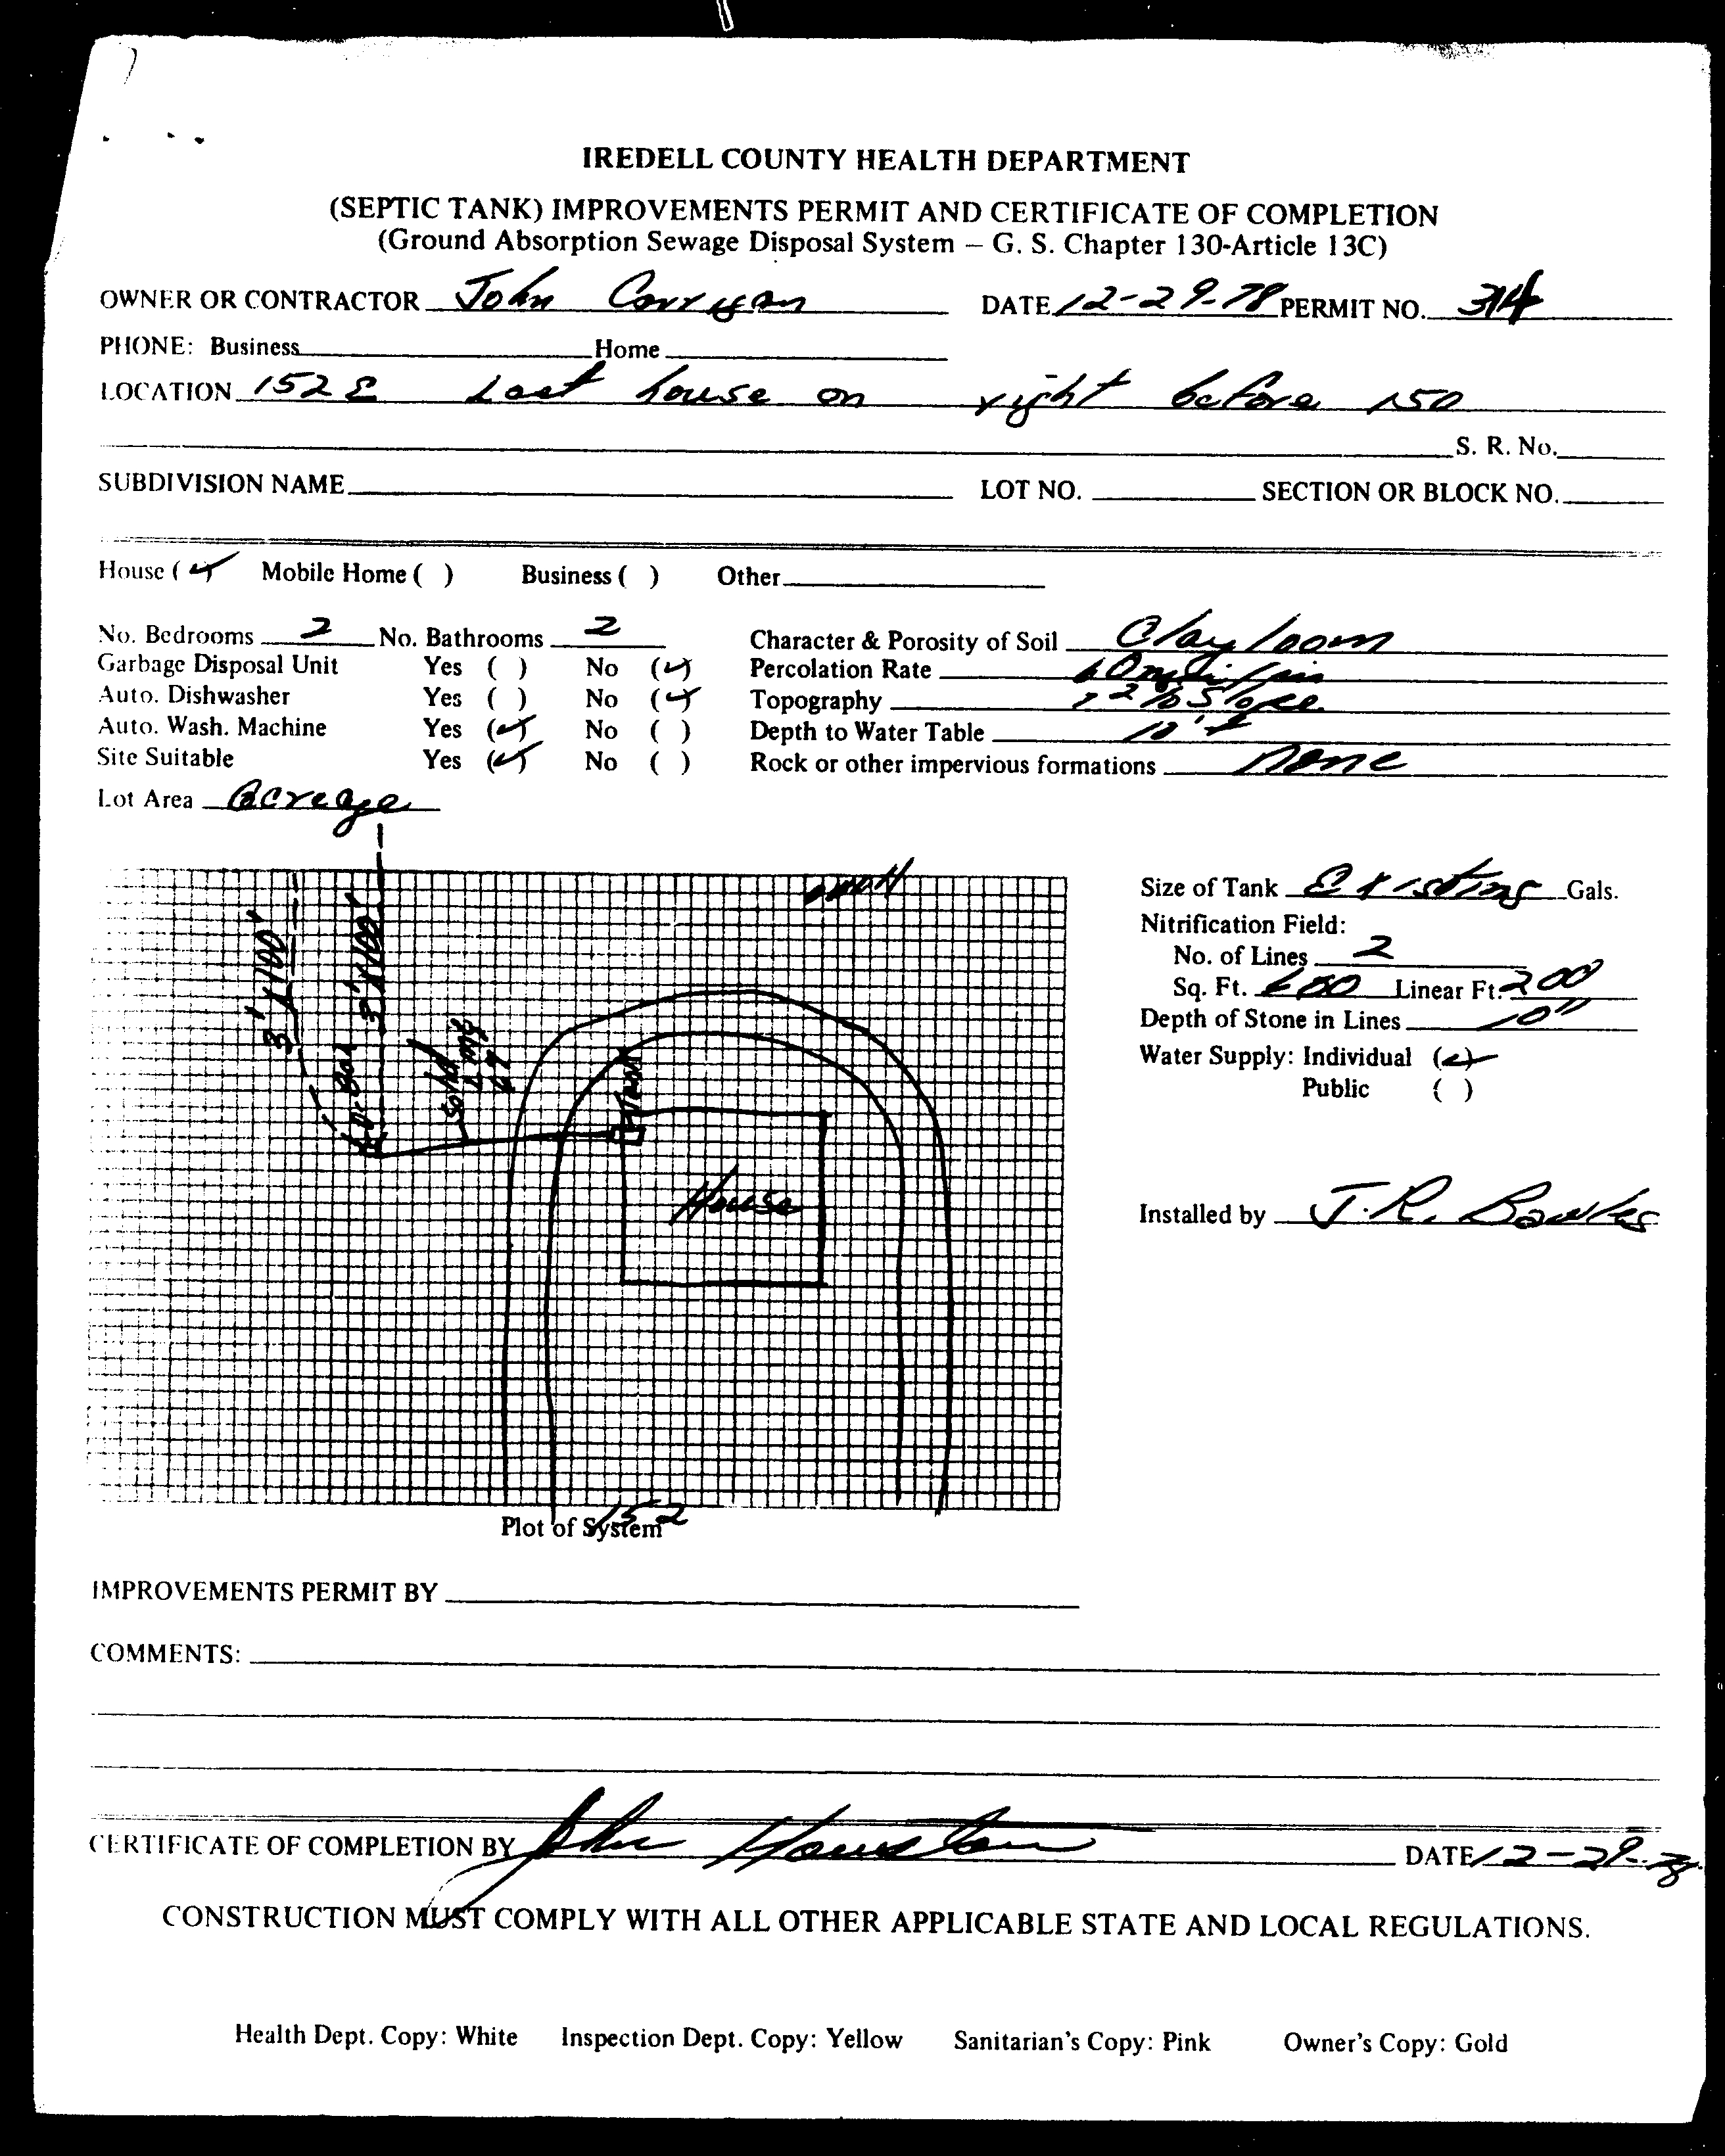 IREDELL COUNTY HEALTH DEPARTMENT
(SEPTIC TANK) IMPROVEMENTS PERMIT AND CERTIFICATE OF COMPLETION
(Ground Absorption Sewage Disposal System – G. S. Chapter 130-Article 13C)
OWNER OR CONTRACTOR John Corrigan DATE 12-29-78 PERMIT NO. 314
PHONE: Business Home
LOCATION 152 E Last house on right before 150
S. R. No.
SUBDIVISION NAME LOT NO. SECTION OR BLOCK NO.
House (✓) Mobile Home ( ) Business ( ) Other
No. Bedrooms 2 No. Bathrooms 2 Character & Porosity of Soil Clay loom
Garbage Disposal Unit Yes ( ) No (✓) Percolation Rate
Auto. Dishwasher Yes ( ) No (✓) Topography 2% Slope
Auto. Wash. Machine Yes (✓) No ( ) Depth to Water Table 10' ±
Site Suitable Yes (✓) No ( ) Rock or other impervious formations none
Lot Area Acreage
3' x 100'
3' x 100'
D. Box
Solid
Tank
House
152
Plot of System
Size of Tank Existing Gals.
Nitrification Field:
No. of Lines 2
Sq. Ft. 600 Linear Ft. 200
Depth of Stone in Lines 10"
Water Supply: Individual (✓)
Public ( )
Installed by J. R. Bowles
IMPROVEMENTS PERMIT BY
COMMENTS:
CERTIFICATE OF COMPLETION BY John Houston DATE 12-29-78
CONSTRUCTION MUST COMPLY WITH ALL OTHER APPLICABLE STATE AND LOCAL REGULATIONS.
Health Dept. Copy: White Inspection Dept. Copy: Yellow Sanitarian's Copy: Pink Owner's Copy: Gold